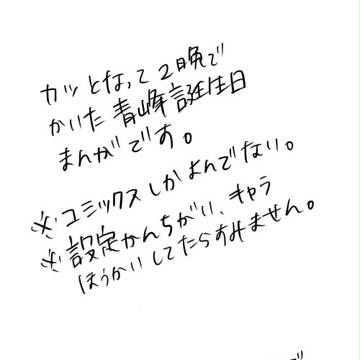 カッとなって2晩で
かいた青峰誕生日
まんがです。
※コミックスしかよんでない。
※設定かんちがい、キャラ
ほうかいしてたらすみません。